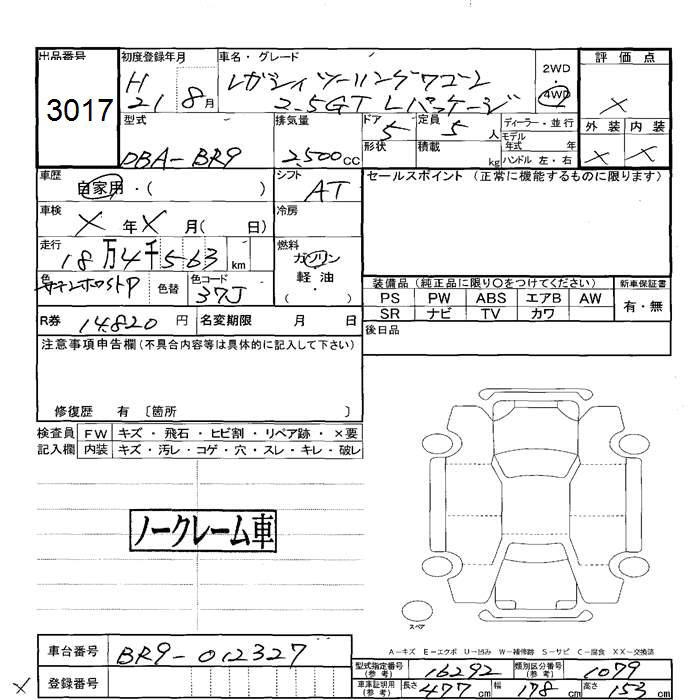 出品番号 初度登録年月 車名・グレード 評価点
3017 H 21 8月 レガシィツーリングワゴン 2WD・4WD ×
2.5GT Lパッケージ
型式 排気量 ドア 5 定員 5人 ディーラー・並行 外装 内装
DBA-BR9 2,500cc 形状 積載 kg モデル年式 年 × ×
ハンドル 左・右
車歴 自家用・( ) シフト AT セールスポイント(正常に機能するものに限ります)
車検 × 年 × 月( 日) 冷房
走行 18万4千563km 燃料 ガソリン
軽油
( ・ )
色 色替 色コード 37J 装備品(純正品に限り〇をつけてください) 新車保証書
PS PW ABS エアB AW 有・無
SR ナビ TV カワ
R券 14820円 名変期限 月 日 後日品
注意事項申告欄(不具合内容等は具体的に記入して下さい)
修復歴 有 〔箇所 〕
検査員 FW キズ・飛石・ヒビ割・リペア跡・×要
記入欄 内装 キズ・汚レ・コゲ・穴・スレ・キレ・破レ
ノークレーム車
スペア
A-キズ E-エクボ U-凹み W-補修跡 S-サビ C-腐食 XX-交換済
車台番号 BR9-012327 型式指定番号(参考) 16292 類別区分番号(参考) 1079
× 登録番号 車庫証明用(参考) 長さ 477cm 幅 178cm 高さ 153cm